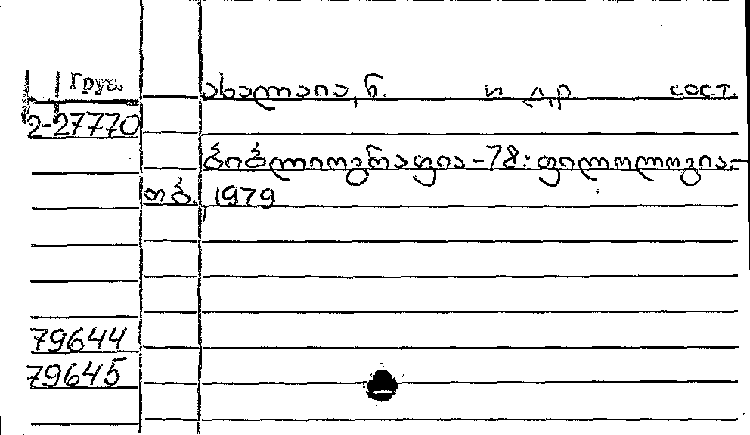 Груз.
ახალაია, ნ. и др сост.
2-27770
ბიბლიოგრაფია-78: ფილოლოგია.-
თბ., 1979
79644
79645